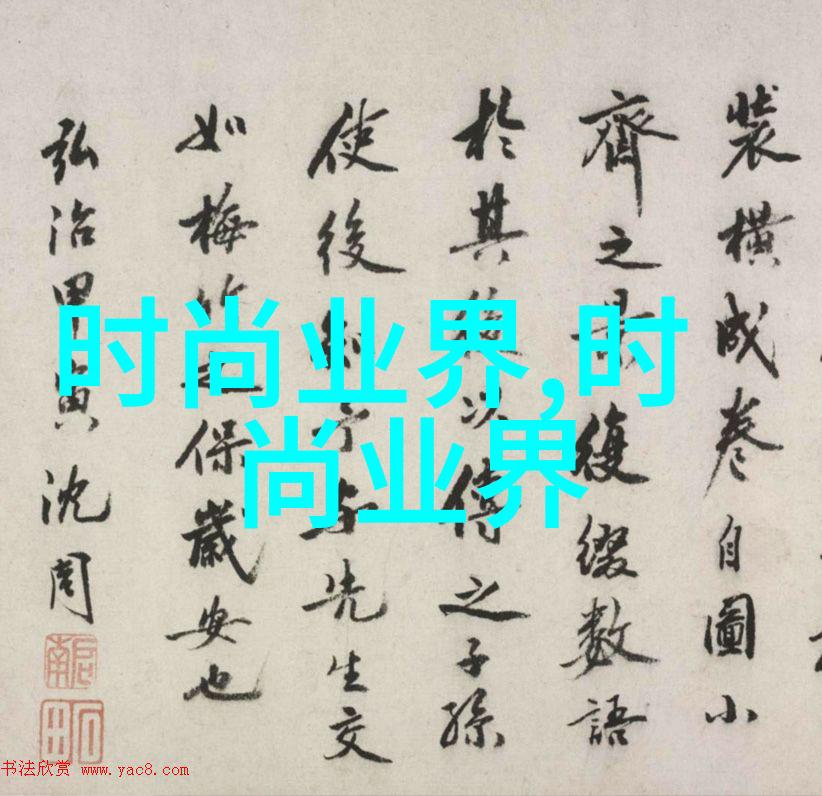 裝橫成卷自圖小
齊之復綴數語
於其傳之子孫
使後與先生交
如梅竹之保歲安也
弘治甲寅沈周
时尚业界,时
尚业界
书法欣赏 www.yac8.com